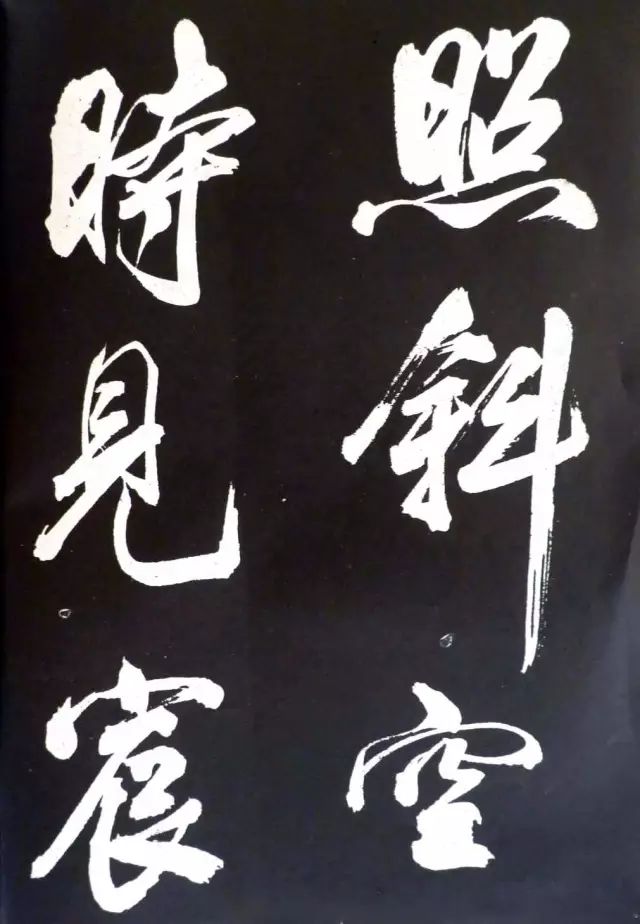 照斜空
時見